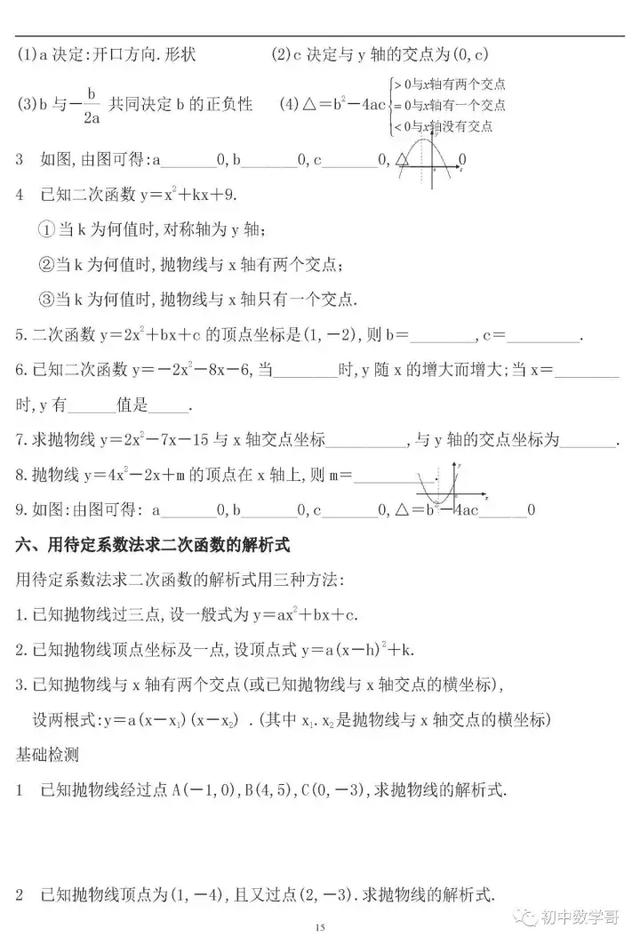 (1)a 决定:开口方向.形状 (2)c 决定与 y 轴的交点为(0,c)
(3)b 与−b/2a 共同决定 b 的正负性 (4)△=b²−4ac{>0与x轴有两个交点
=0与x轴有一个交点
<0与x轴没有交点
3 如图,由图可得:a_______0,b_______0,c_______0,△ 0
4 已知二次函数 y=x²+kx+9.
①当 k 为何值时,对称轴为 y 轴;
②当 k 为何值时,抛物线与 x 轴有两个交点;
③当 k 为何值时,抛物线与 x 轴只有一个交点.
5.二次函数 y=2x²+bx+c 的顶点坐标是(1,−2),则 b=________,c=_________.
6.已知二次函数 y=−2x²−8x−6,当________时,y 随 x 的增大而增大;当 x=________
时,y 有______值是_____.
7.求抛物线 y=2x²−7x−15 与 x 轴交点坐标__________,与 y 轴的交点坐标为_______.
8.抛物线 y=4x²−2x+m 的顶点在 x 轴上,则 m=__________.
9.如图:由图可得: a_______0,b_______0,c_______0,△=b²−4ac______0
六、用待定系数法求二次函数的解析式
用待定系数法求二次函数的解析式用三种方法:
1.已知抛物线过三点,设一般式为 y=ax²+bx+c.
2.已知抛物线顶点坐标及一点,设顶点式 y=a(x−h)²+k.
3.已知抛物线与 x 轴有两个交点(或已知抛物线与 x 轴交点的横坐标),
设两根式:y=a(x−x₁)(x−x₂) .(其中 x₁.x₂是抛物线与 x 轴交点的横坐标)
基础检测
1 已知抛物线经过点 A(−1,0),B(4,5),C(0,−3),求抛物线的解析式.
2 已知抛物线顶点为(1,−4),且又过点(2,−3).求抛物线的解析式.
15
初中数学哥